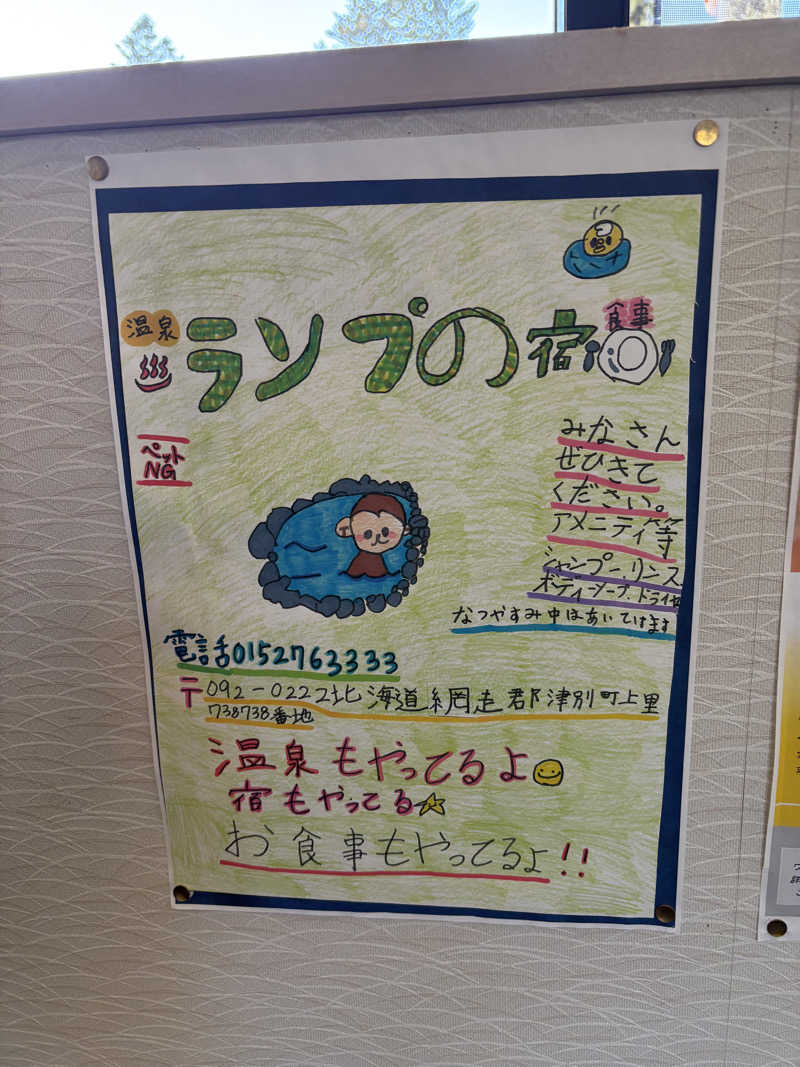 温泉
ランプの宿
食事
ペット
NG
みなさん
ぜひきて
ください。
アメニティ等
シャンプー、リンス
ボディーソープ、ドライヤー
なつやすみ中はあいてけます
電話0152763333
〒092-0222北海道網走郡津別町上里
738738番地
温泉もやってるよ
宿もやってる
お食事もやってるよ!!